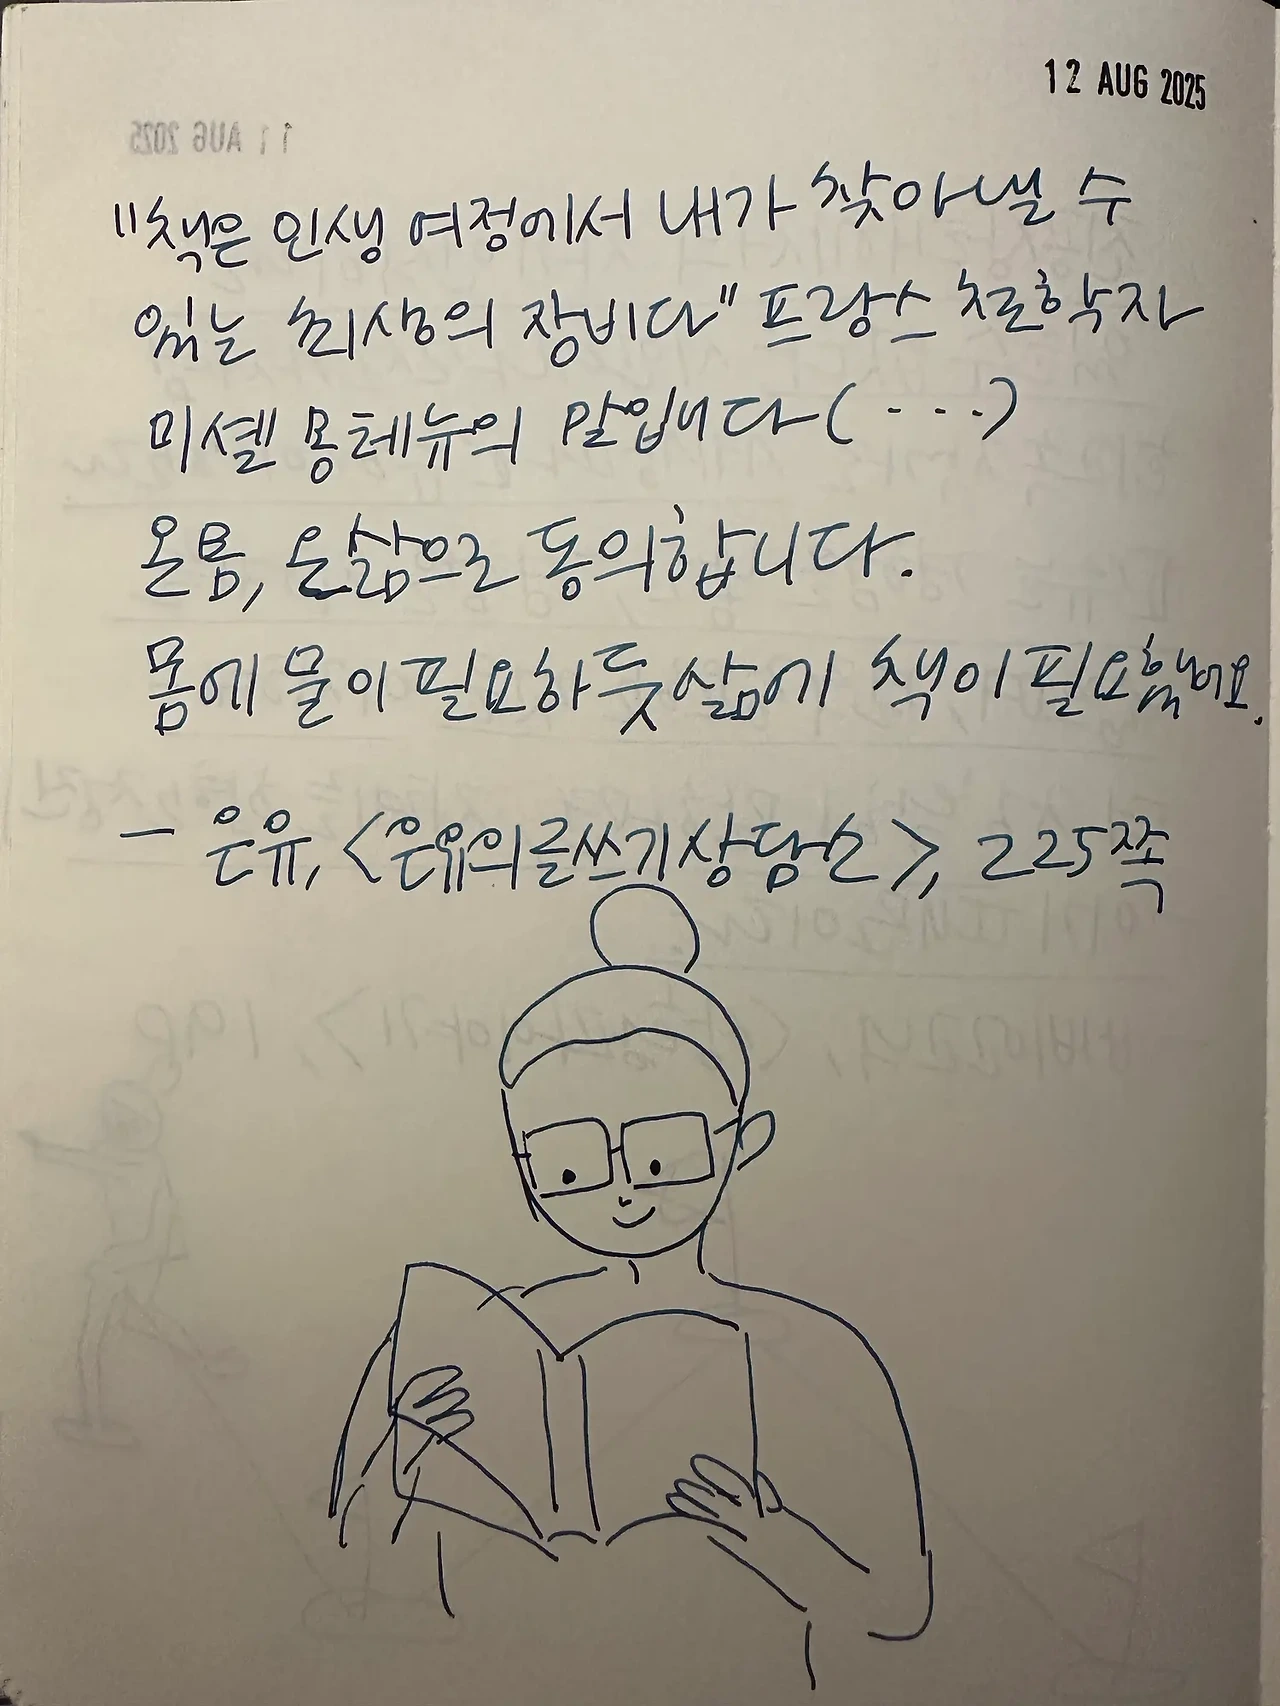 12 AUG 2025
"책은 인생 여정에서 내가 찾아낼 수
있는 최상의 장비다" 프랑스 철학자
미셸 몽테뉴의 말입니다(···)
온몸, 온삶으로 동의합니다.
몸에 물이 필요하듯 삶에 책이 필요했어요.
- 은유, <은유의 글쓰기 상담소>, 225쪽
11 AUG 2025